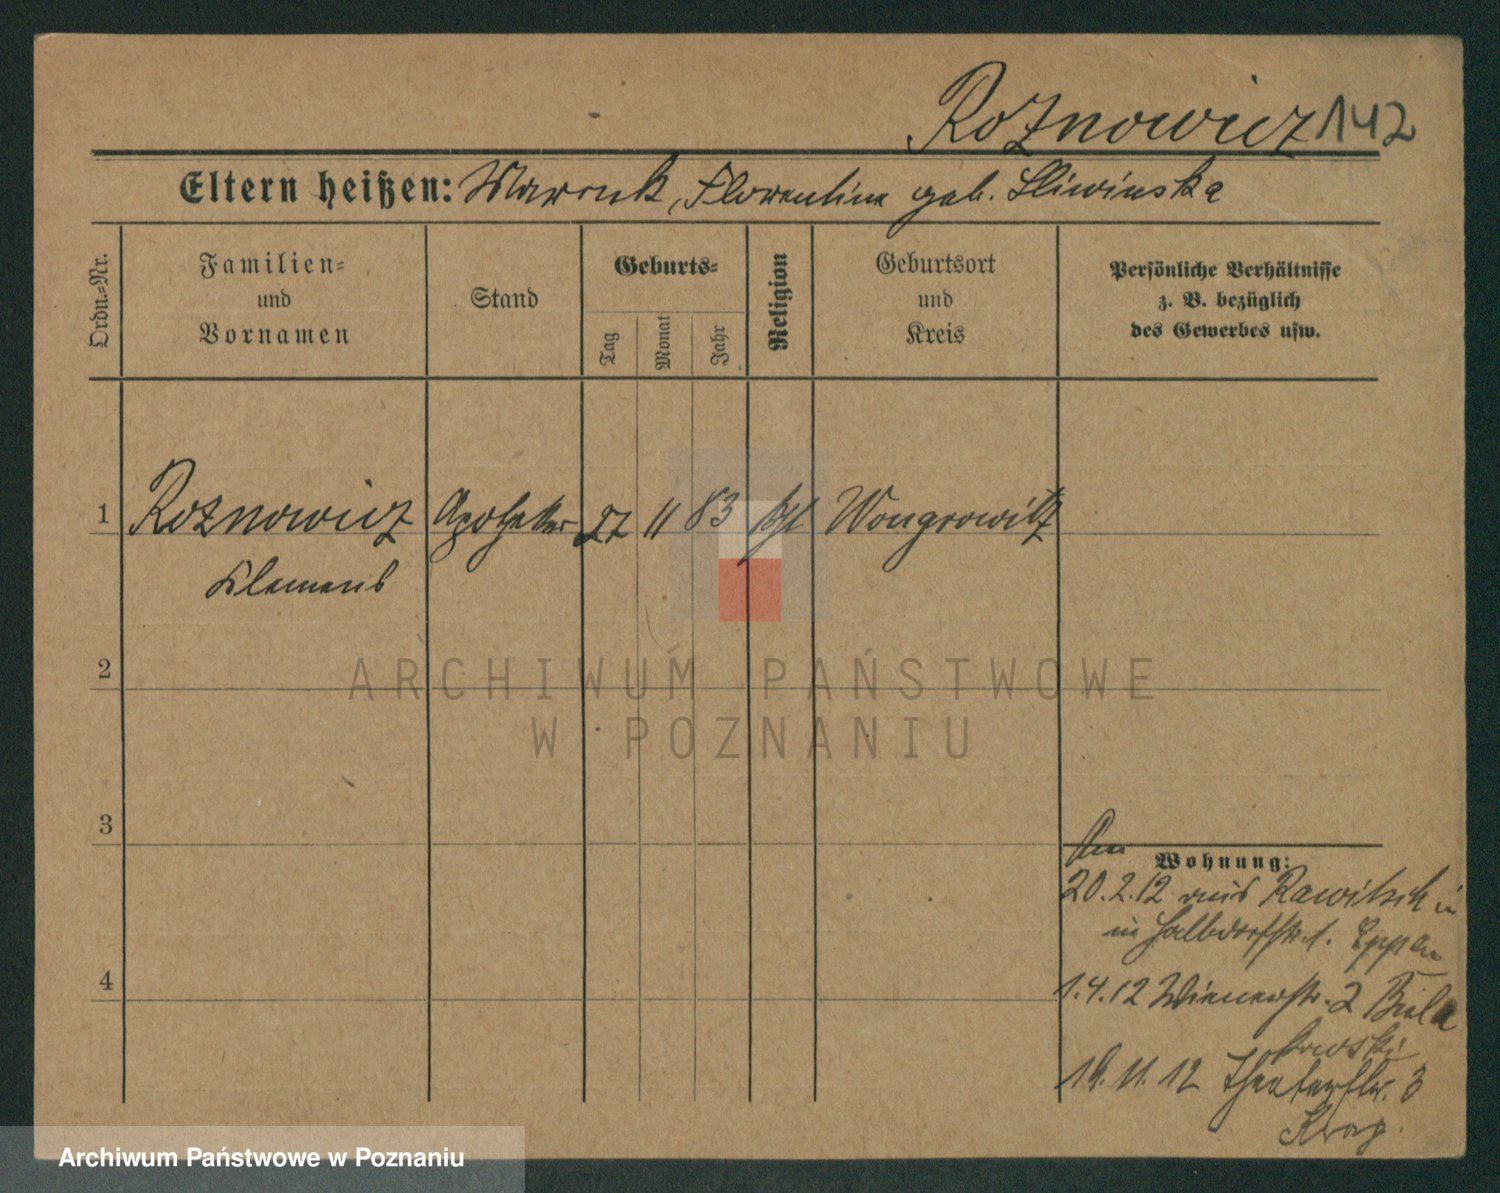 Roznowicz 142
Eltern heißen: Mawruk, Florentine geb. Sliwinska
Ordn.-Nr.
Familien-
und
Vornamen
Stand
Geburts-
Tag
Monat
Jahr
Religion
Geburtsort
und
Kreis
Persönliche Verhältnisse
z. B. bezüglich
des Gewerbes usw.
1 Roznowicz Apotheker 27 11 83 kgl Wongrowitz
Klemens
2
3
4
Am
Wohnung:
20.2.12 aus Rawitsch in
in Halbdorfstr. 1. Eppen
1.4.12 Wienerstr. 2 Biela
kowski
19.11.12 Theaterstr. 3
ARCHIWUM PAŃSTWOWE
W POZNANIU
Archiwum Państwowe w Poznaniu